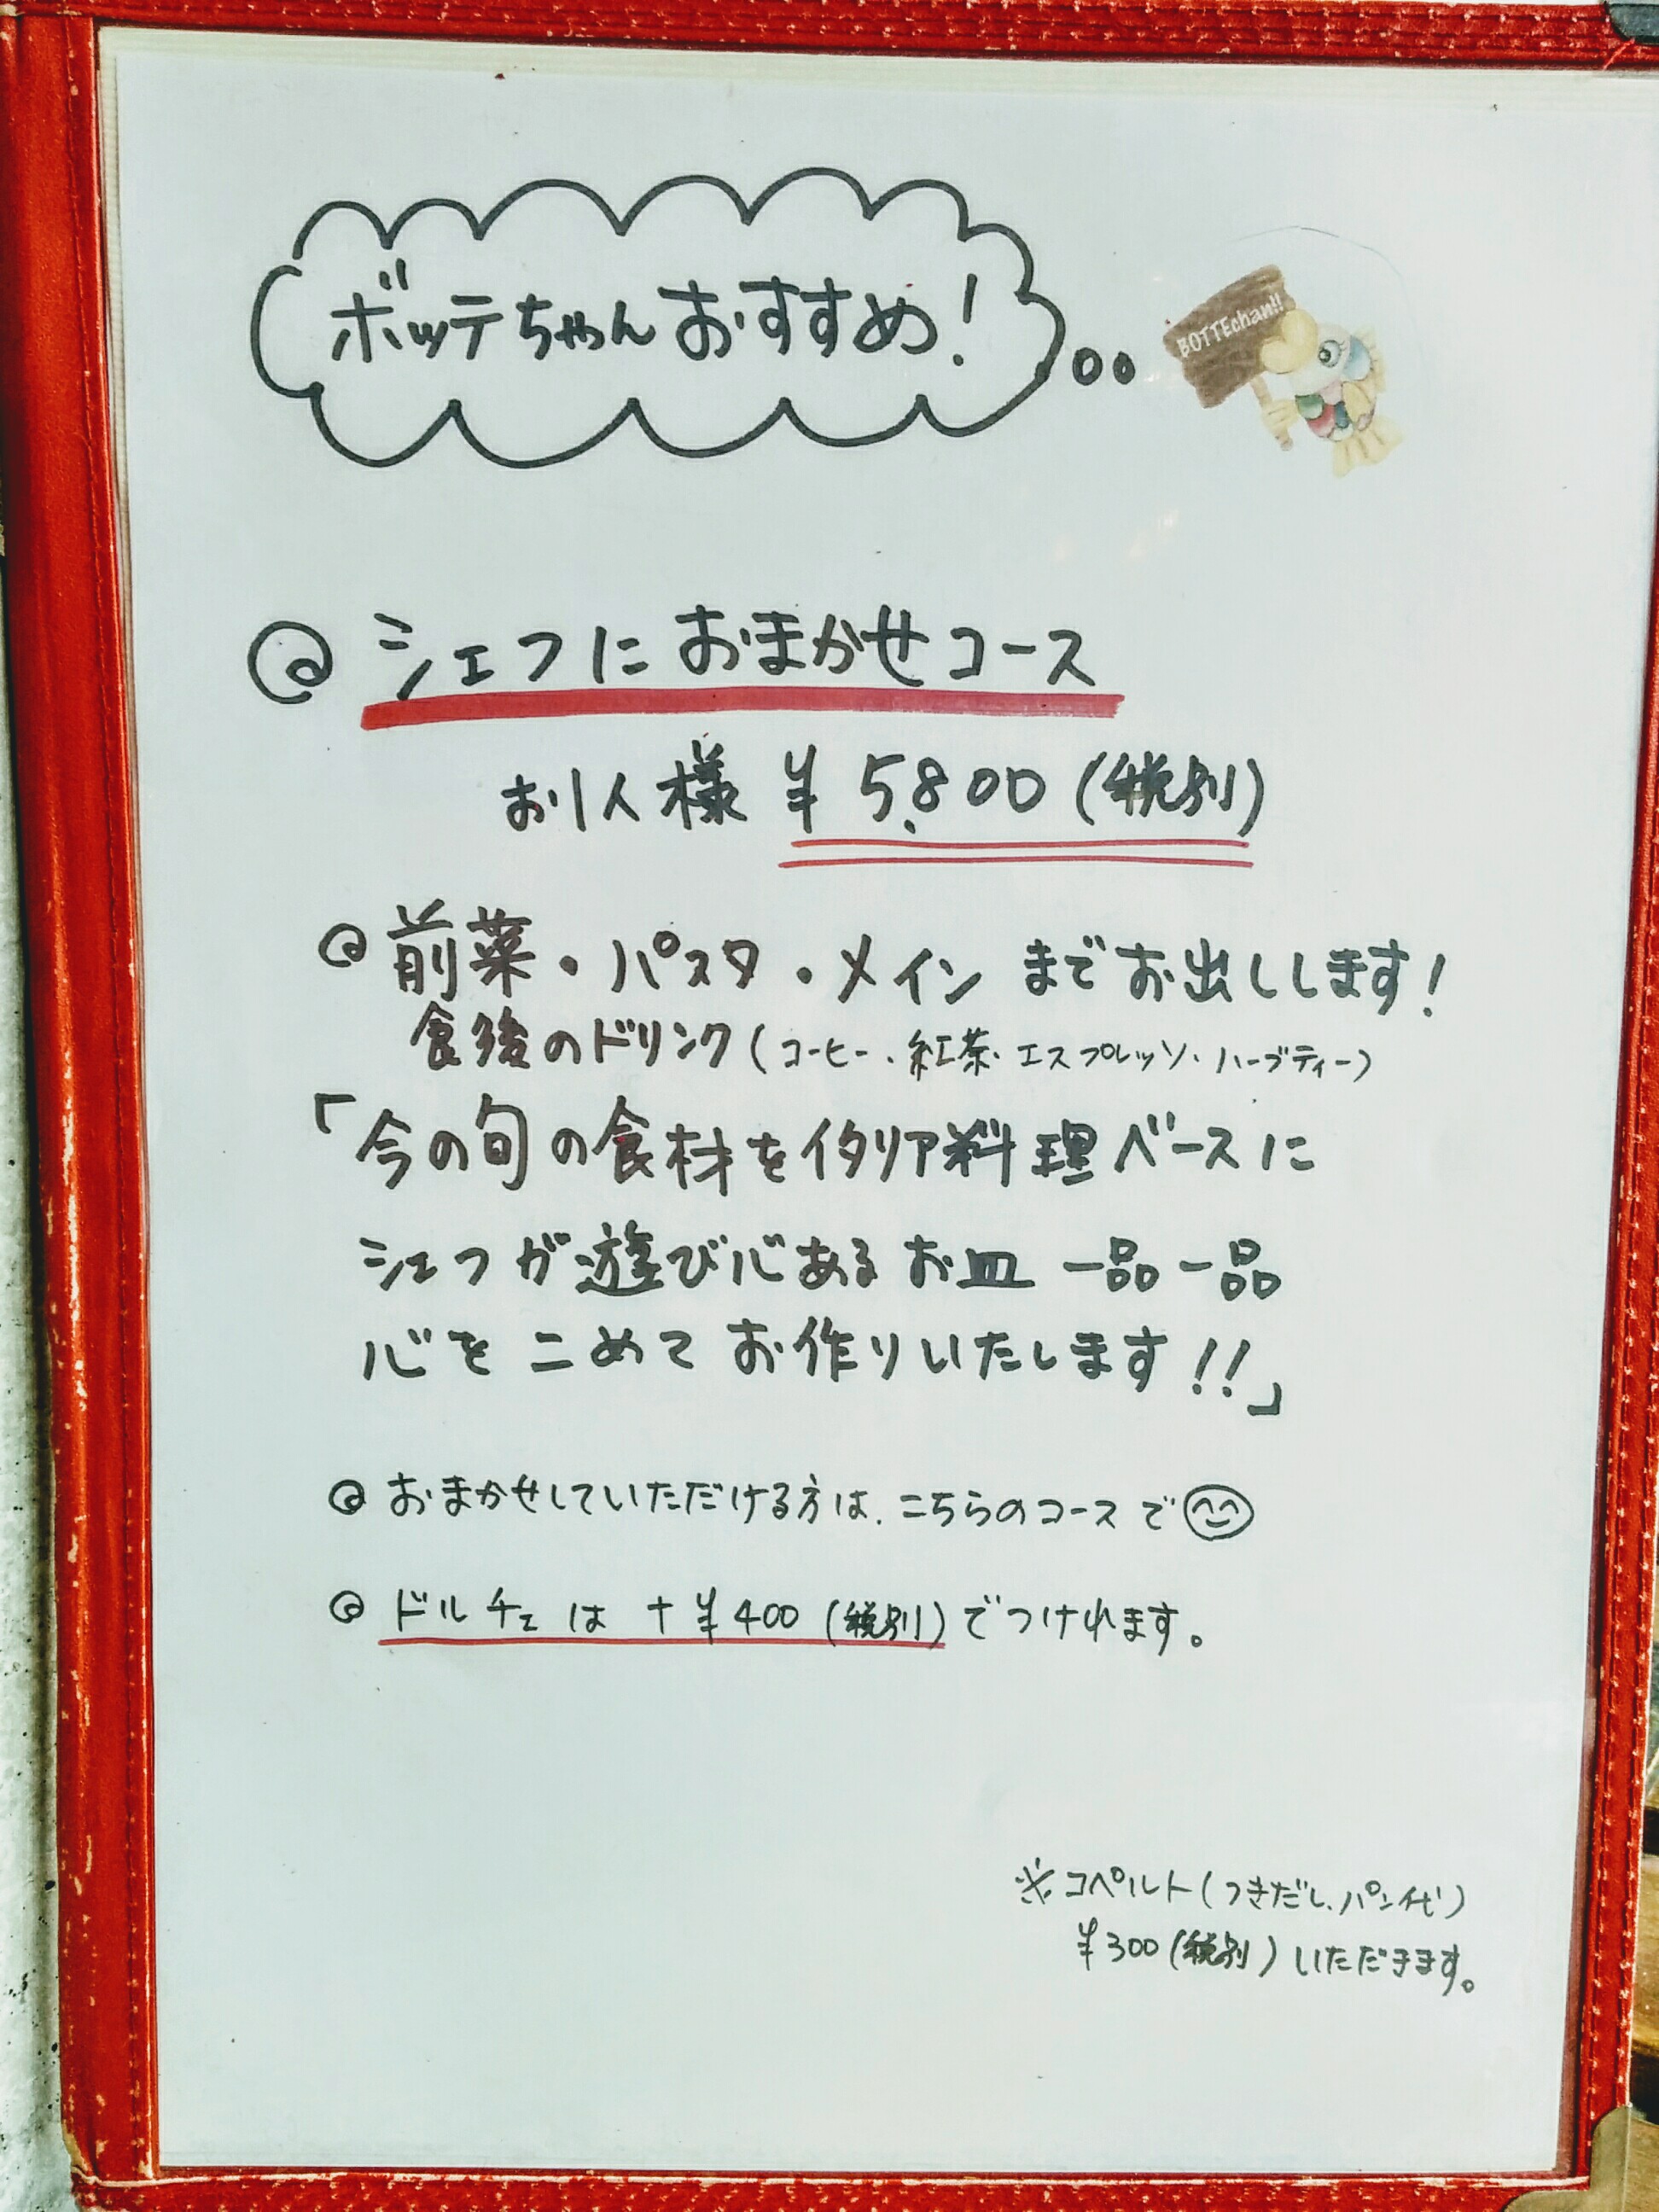 ボッテちゃんおすすめ!
BOTTEchan!!
シェフにおまかせコース
お1人様 ¥5,800(税別)
前菜・パスタ・メインまでお出しします!
食後のドリンク(コーヒー・紅茶・エスプレッソ・ハーブティー)
「今の旬の食材をイタリア料理ベースに
シェフが遊び心あるお皿一品一品
心をこめてお作りいたします!!」
おまかせしていただける方は、こちらのコースで
ドルチェは+¥400(税別)でつけれます。
※コペルト(つきだし、パン代)
¥300(税別)いただきます。